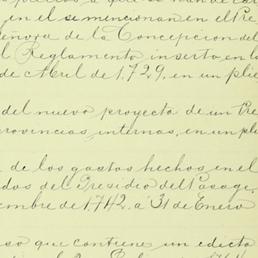 en el se mencionan en el Pre
Señora de la Concepcion del
l Reglamento inserto en la
de Abril de 1,729, en un plie
del nuevo proyecto de un Pre
rovincias internas, en un pl
de los gastos hechos en el
dos del Presidio del Pasage,
iembre de 1,742 á 31 de Enero
so que contiene un edicto